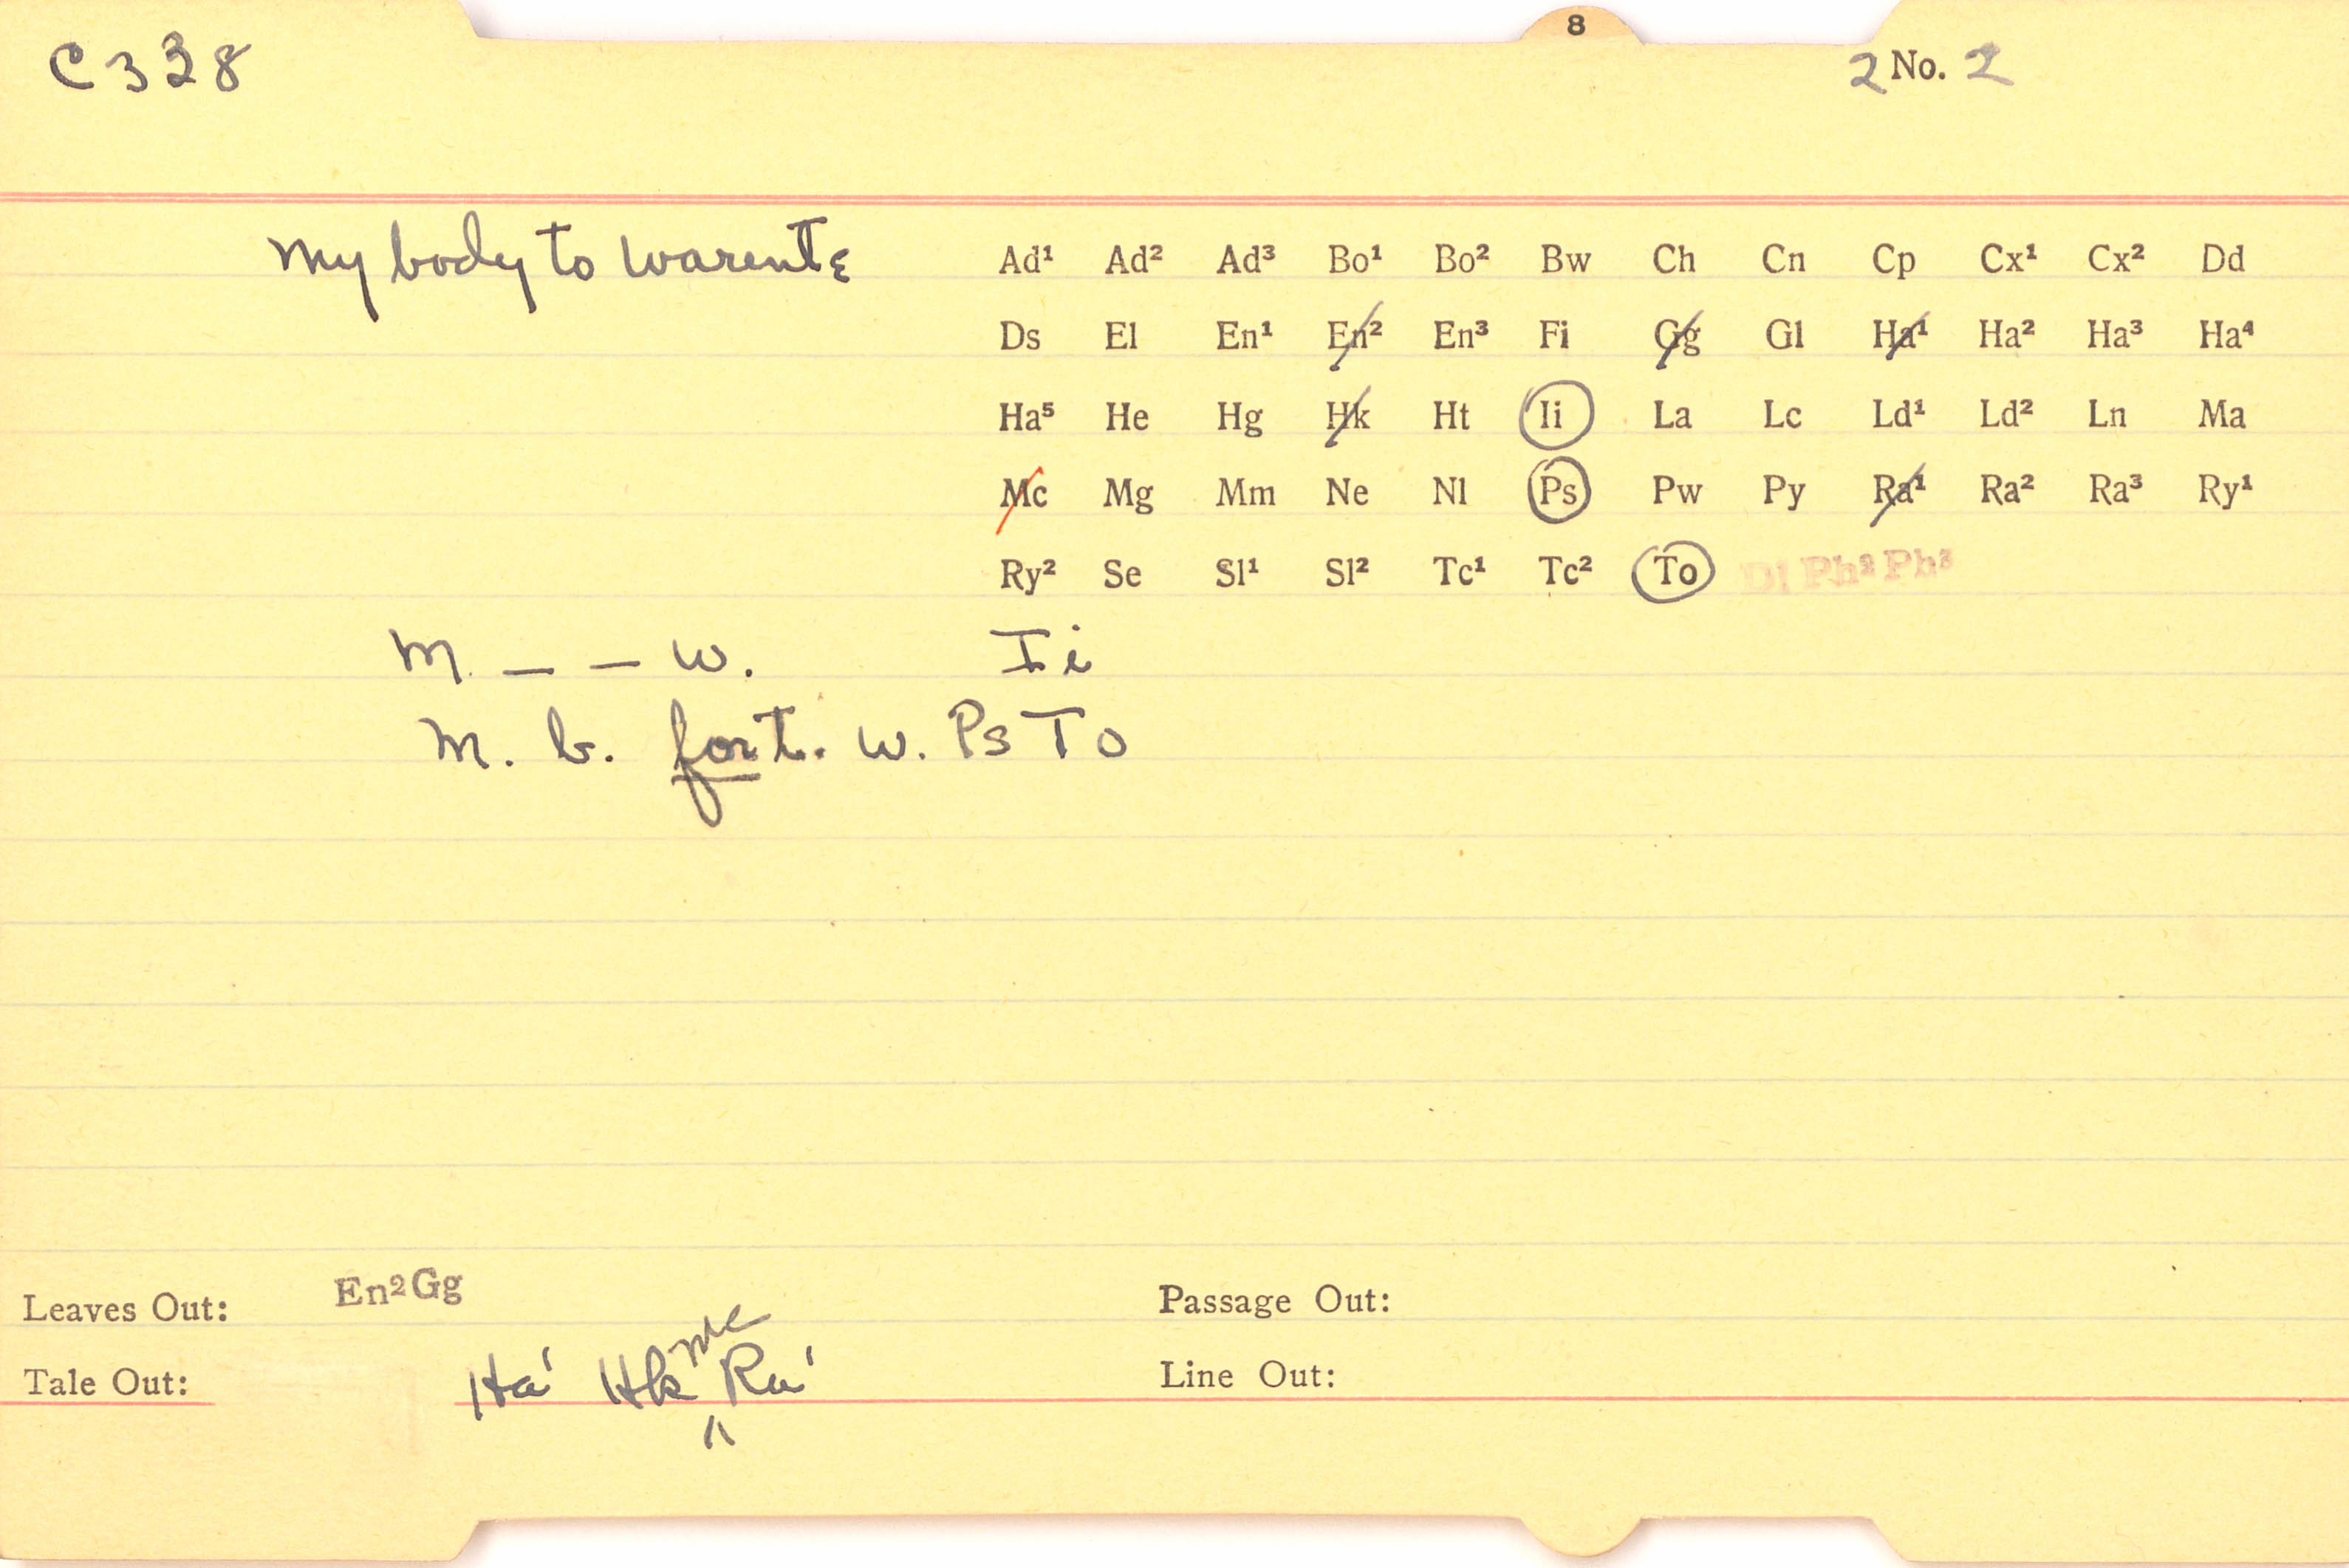 8
C 338
2 No. 2
My body to warente
Ad¹ Ad² Ad³ Bo¹ Bo² Bw Ch Cn Cp Cx¹ Cx² Dd
Ds El En¹ En² En³ Fi Gg Gl Ha¹ Ha² Ha³ Ha⁴
Ha⁵ He Hg Hk Ht Ii La Lc Ld¹ Ld² Ln Ma
Mc Mg Mm Ne Nl Ps Pw Py Ra¹ Ra² Ra³ Ry¹
Ry² Se Sl¹ Sl² Tc¹ Tc² To Dl Ph² Ph³
M. — — w. Ii
M. b. for t. w. Ps To
Leaves Out: En² Gg
Passage Out:
Tale Out: Ha¹ Hk Mc Ra¹
Line Out: